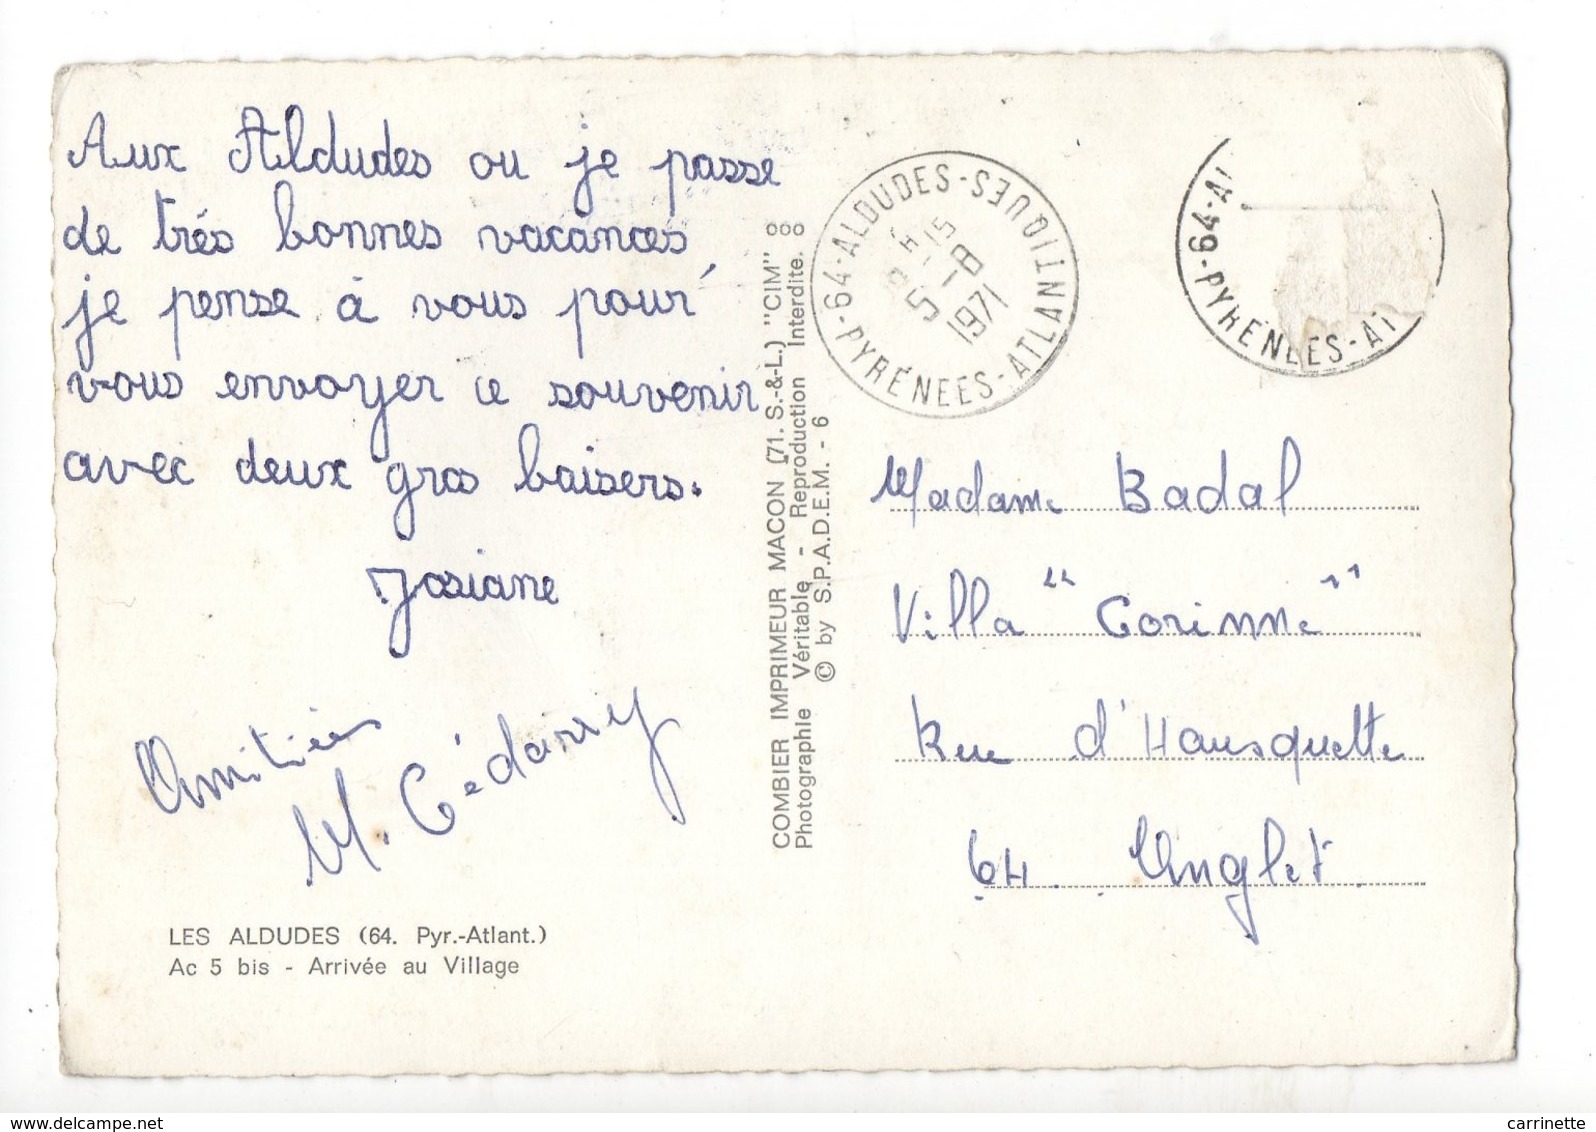 Aux Aldudes ou je passe
de trés bonnes vacances
je pense à vous pour
vous envoyer ce souvenir
avec deux gros baisers.
Josiane
Amitiés
M.
LES ALDUDES (64. Pyr.-Atlant.)
Ac 5 bis - Arrivée au Village
COMBIER IMPRIMEUR MACON (71. S.-&-L.) "CIM" ooo
Photographie Véritable - Reproduction Interdite.
© by S.P.A.D.E.M. - 6
64-ALDUDES-
PYRÉNEES-ATLANTIQUES
H 15
5-8
1971
-64-A
PYRENEES-AT
Madame Badal
Villa "Corinne"
Rue d'Hausquette
64 Anglet
delcampe.net
carrinette